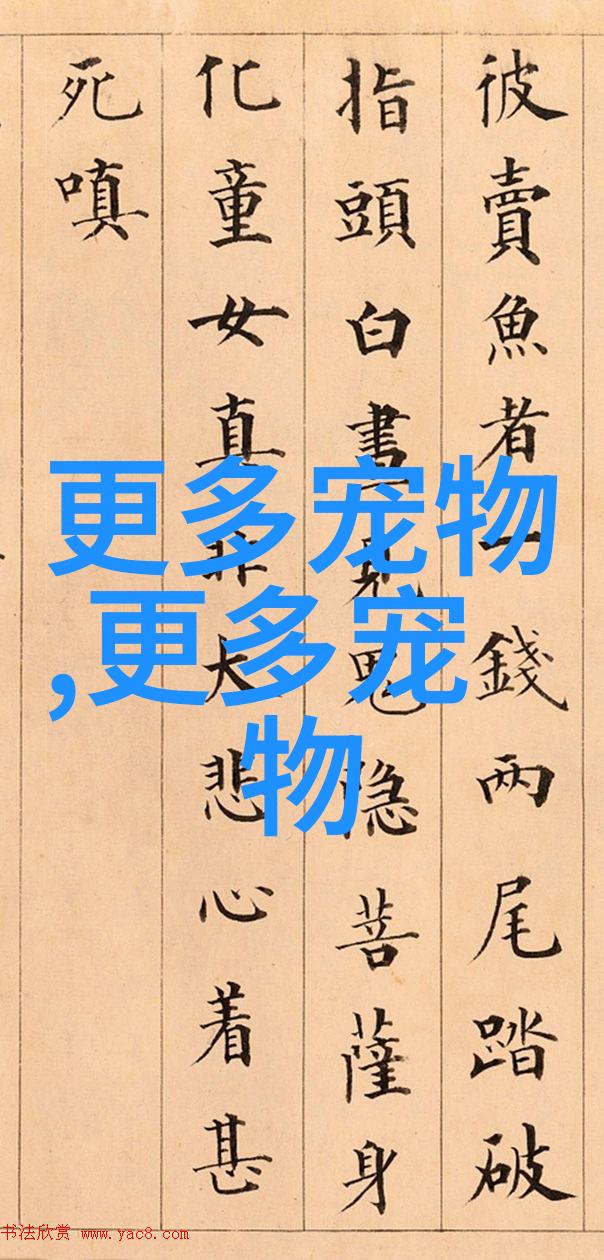 彼賣魚者一錢两尾踏破
指頭白晝見鬼隐菩薩身
化童女真非大悲心着甚
死嗔
更多宠物
,更多宠
物
书法欣赏 www.yac8.com